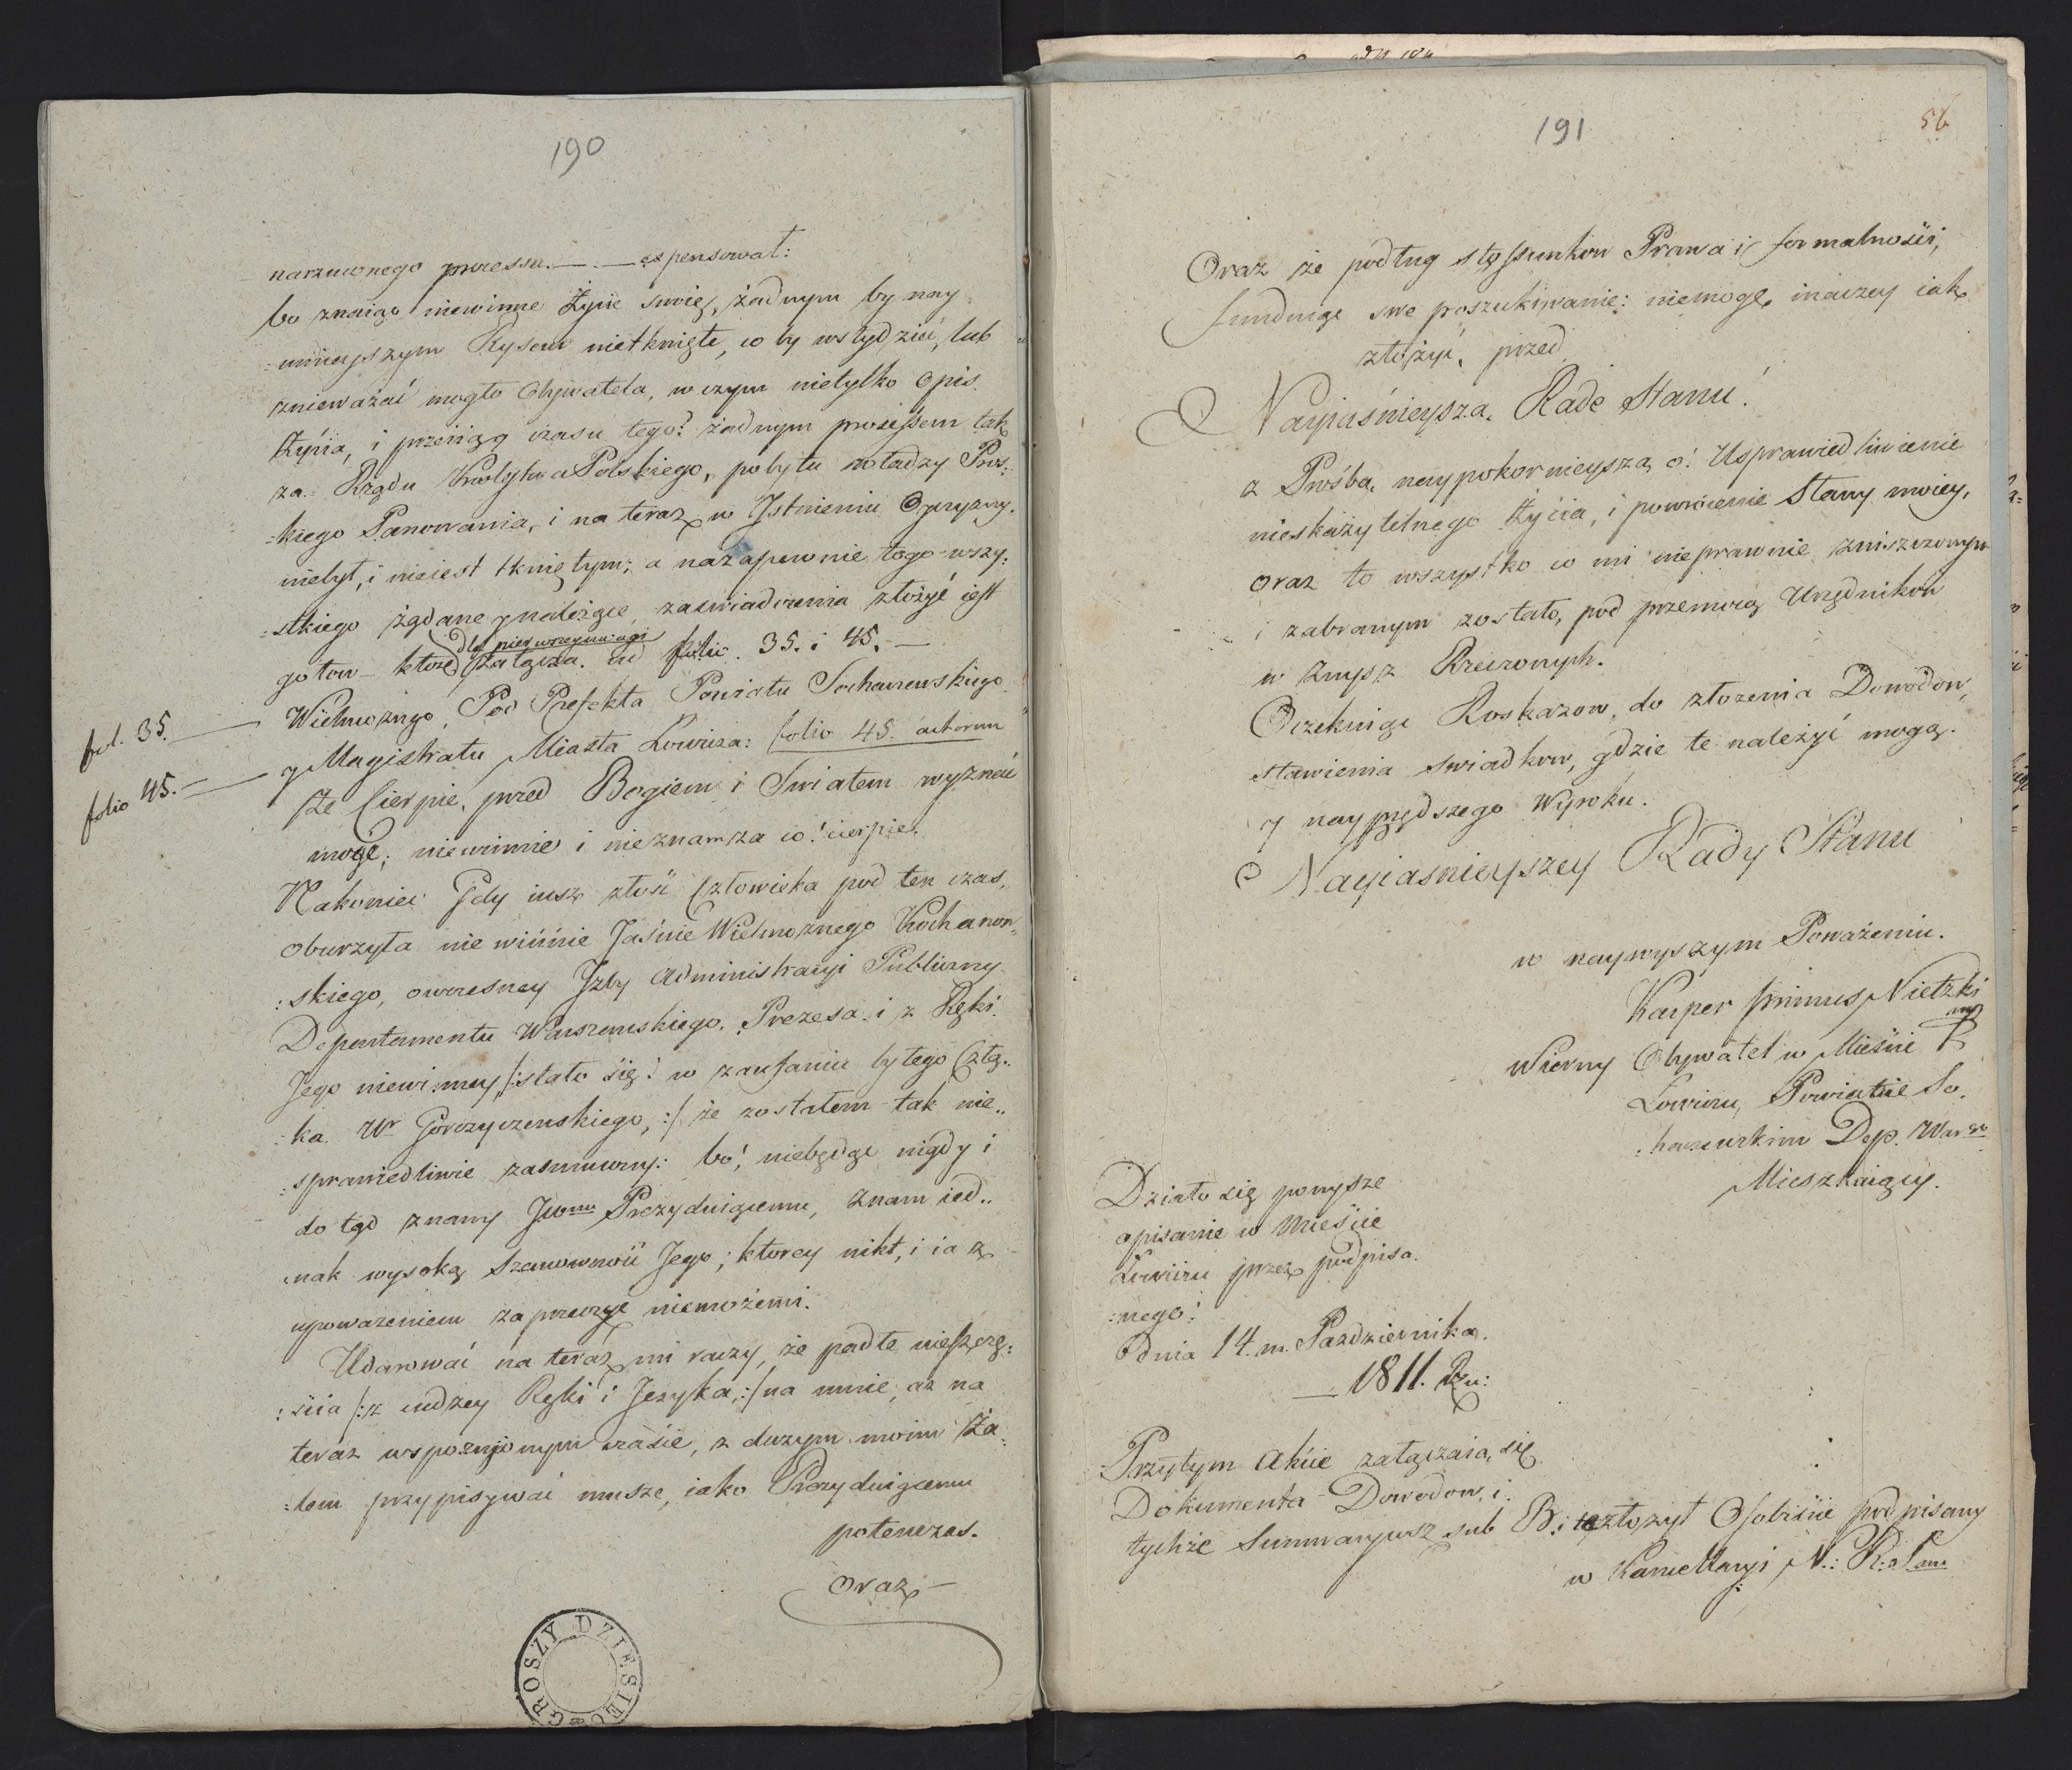 190
narzuconego processu. — . — expensował:
bo znaiąc niewinne Życie swoię, żadnym by nay
:mnieyszym Rysem nietknięte, co by wstydzić, lub
znieważać mogło Obywatela, w czym nietylko Opis
Życia, i przeciąg czasu tego? żadnym processem tak
za Rządu Krolestwa Polskiego, pobytu władzy Prus:
:kiego Panowania, i na teraz w Jstnieniu Oyczyzny.
niebył, i nieiest tkniętym; a na zapewnie tego wszy:
:stkiego żądane y należące, zaswiadczenia złożyć iest
dla pierwszey uwagi
gotow — ktore załącza. ad folio. 35. i 45. —
fol. 35. — Wielmożnego, Pod Prefekta Powiatu Sochaczewskiego
folio 45. — y Magistratu Miasta Łowicza: folio 45. actorum
Że Cierpie, przed Bogiem i Swiatem wyznać
mogę; niewinnie i nieznam za co! cierpie.
Nakoniec Gdy iusz złość Człowieka pod ten czas,
oburzyła niewinnie Jaśnie Wielmożnego Kochanow,,
:skiego, owczesney Jzby Administracyi Publiczny
Departamentu Warszewskiego. Prezesa i z Ręki
Jego niewinney /:stało się! w zaufaniu byłego Czło..
:ka Wr Gorczyczewskiego, :/ że zostałem tak nie..
:sprawiedliwie zasmucony: bo! niebędąc nigdy i
do tąd znany JWmu Prezyduiącemu, znam ied..
:nak wysoką Szanowność Jego; ktorey nikt, i ia z
upoważeniem zaprzeczyć niemożemi.
Udarować na teraz mi raczy, że padłe nieszczę:
:ścia /:z cudzey Ręki i Jezyka,:/ na mnie, aż na
teraz wspoznionym czasie, z dużym moim Ża:
:lem przypisywać muszę, iako Prezyduiącemu
potenczas.
Oraz —
GROSZY DZIESIĘĆ
191
56
Oraz że podług stossunkow Prawa i formalności,
funduiąc swe poszukiwanie: niemogę, inaczey iak
złożyć, przed
Nayiaśnieysza, Rade Stanu!
z Prośbą, naypokornieyszą, o! Usprawiedliwienie
nieskazytelnego Życia, i powrócenie Sławy moiey,
oraz to wszystko co mi nieprawnie zniszczonym
i zabranym zostało, pod przemocą Urzędnikow
w zwysz Rzeczonych.
Oczekuiąc Roskazow, do złożenia Dowodow,
stawienia swiadkow, gdzie te należyć mogą.
y nayprędszego Wyroku.
Nayiasnieyszey Rady Stanu
w naywyszym Poważeniu.
Kasper primus Nietzki
mp
Wierny Obywatel w Mieście
Łowiczu, Powiatcie So,
:haczewskim Dep. Warsz
Mieszkaiący.
Działo się powysze
opisanie w Mieście
Łowiczu przez podpisa.
:nego!
Dnia 14. m. Pazdziernika.
— 1811. Ru:
Przytym Akcie załączaia, się
Dokumenta Dowodow, i.
tychże Summaryusz sub B: złożył Osobiście podpisany
w Kancellaryi N.: R: Sanu